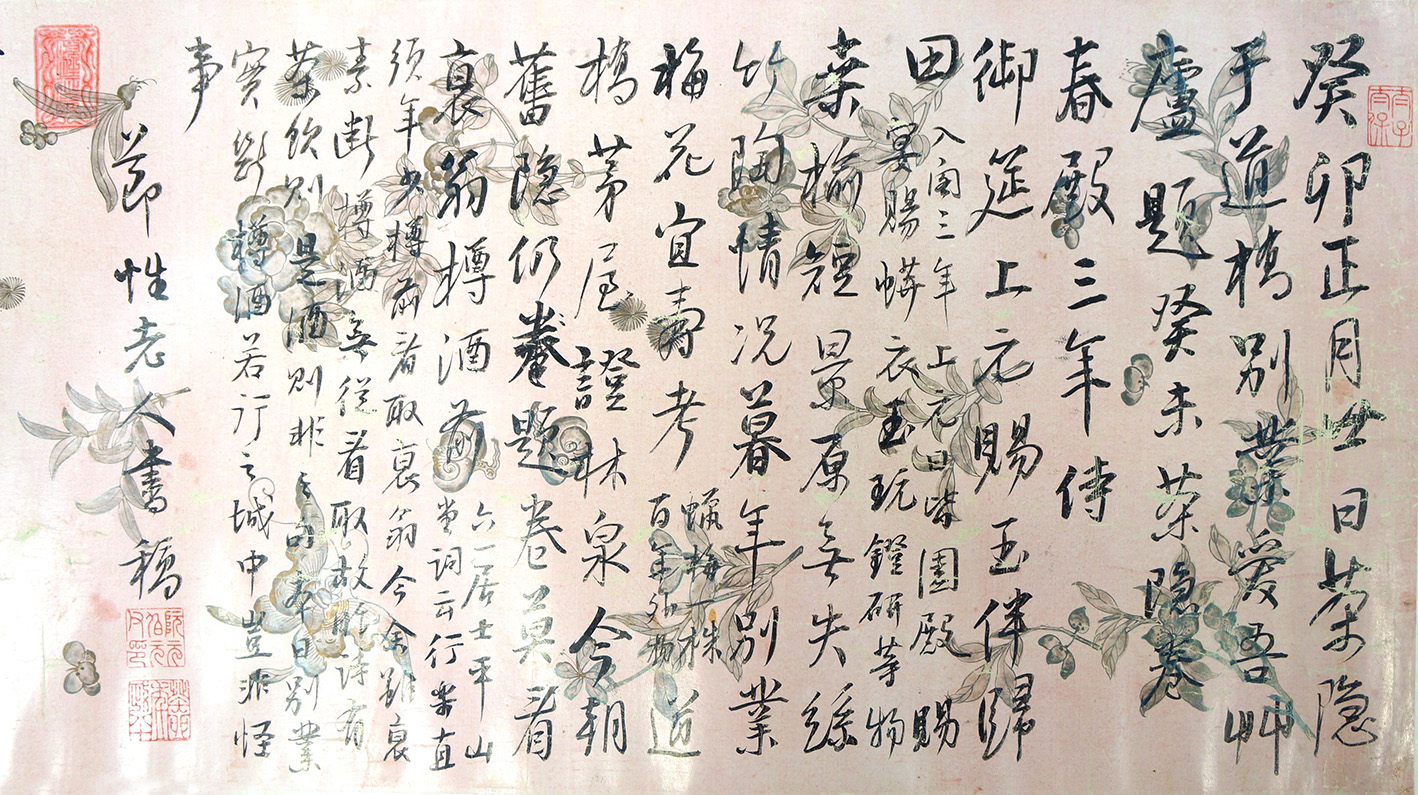 癸卯正月廿日茶隐
于道橋别業愛吾艸
廬題癸未茶隐卷
春殿三年侍
御筵上元賜玉伴歸
田
入閣三年上元日皆園殿賜
宴賜蟒衣玉玩鐙研等物
桒榆短景原無失絲
竹陶情况暮年别業
梅花宜壽考
蠟梅一株
百年外物
近
橋茅屋證林泉今朝
舊隐仍題卷莫看
衰翁樽酒前
六一居士平山
堂詞云行樂直
須年少樽前看取衰翁今余雖衰
素斷樽酒無從看取故詩有
茶飲則是酒則非之句本日别業
實斷樽酒若訂之城中豈非怪
事
節性老人書稿
太子太保